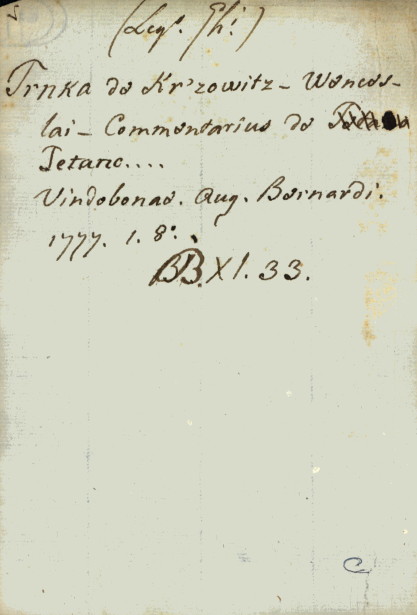 (Leg.ᵗ Ghi.)
Trnka de Kr'zowitz - Wences-
lai - Commentarius de
Tetano....
Vindobonae. Aug. Bernardi.
1777. 1. 8.°
BB. XI. 33.
C